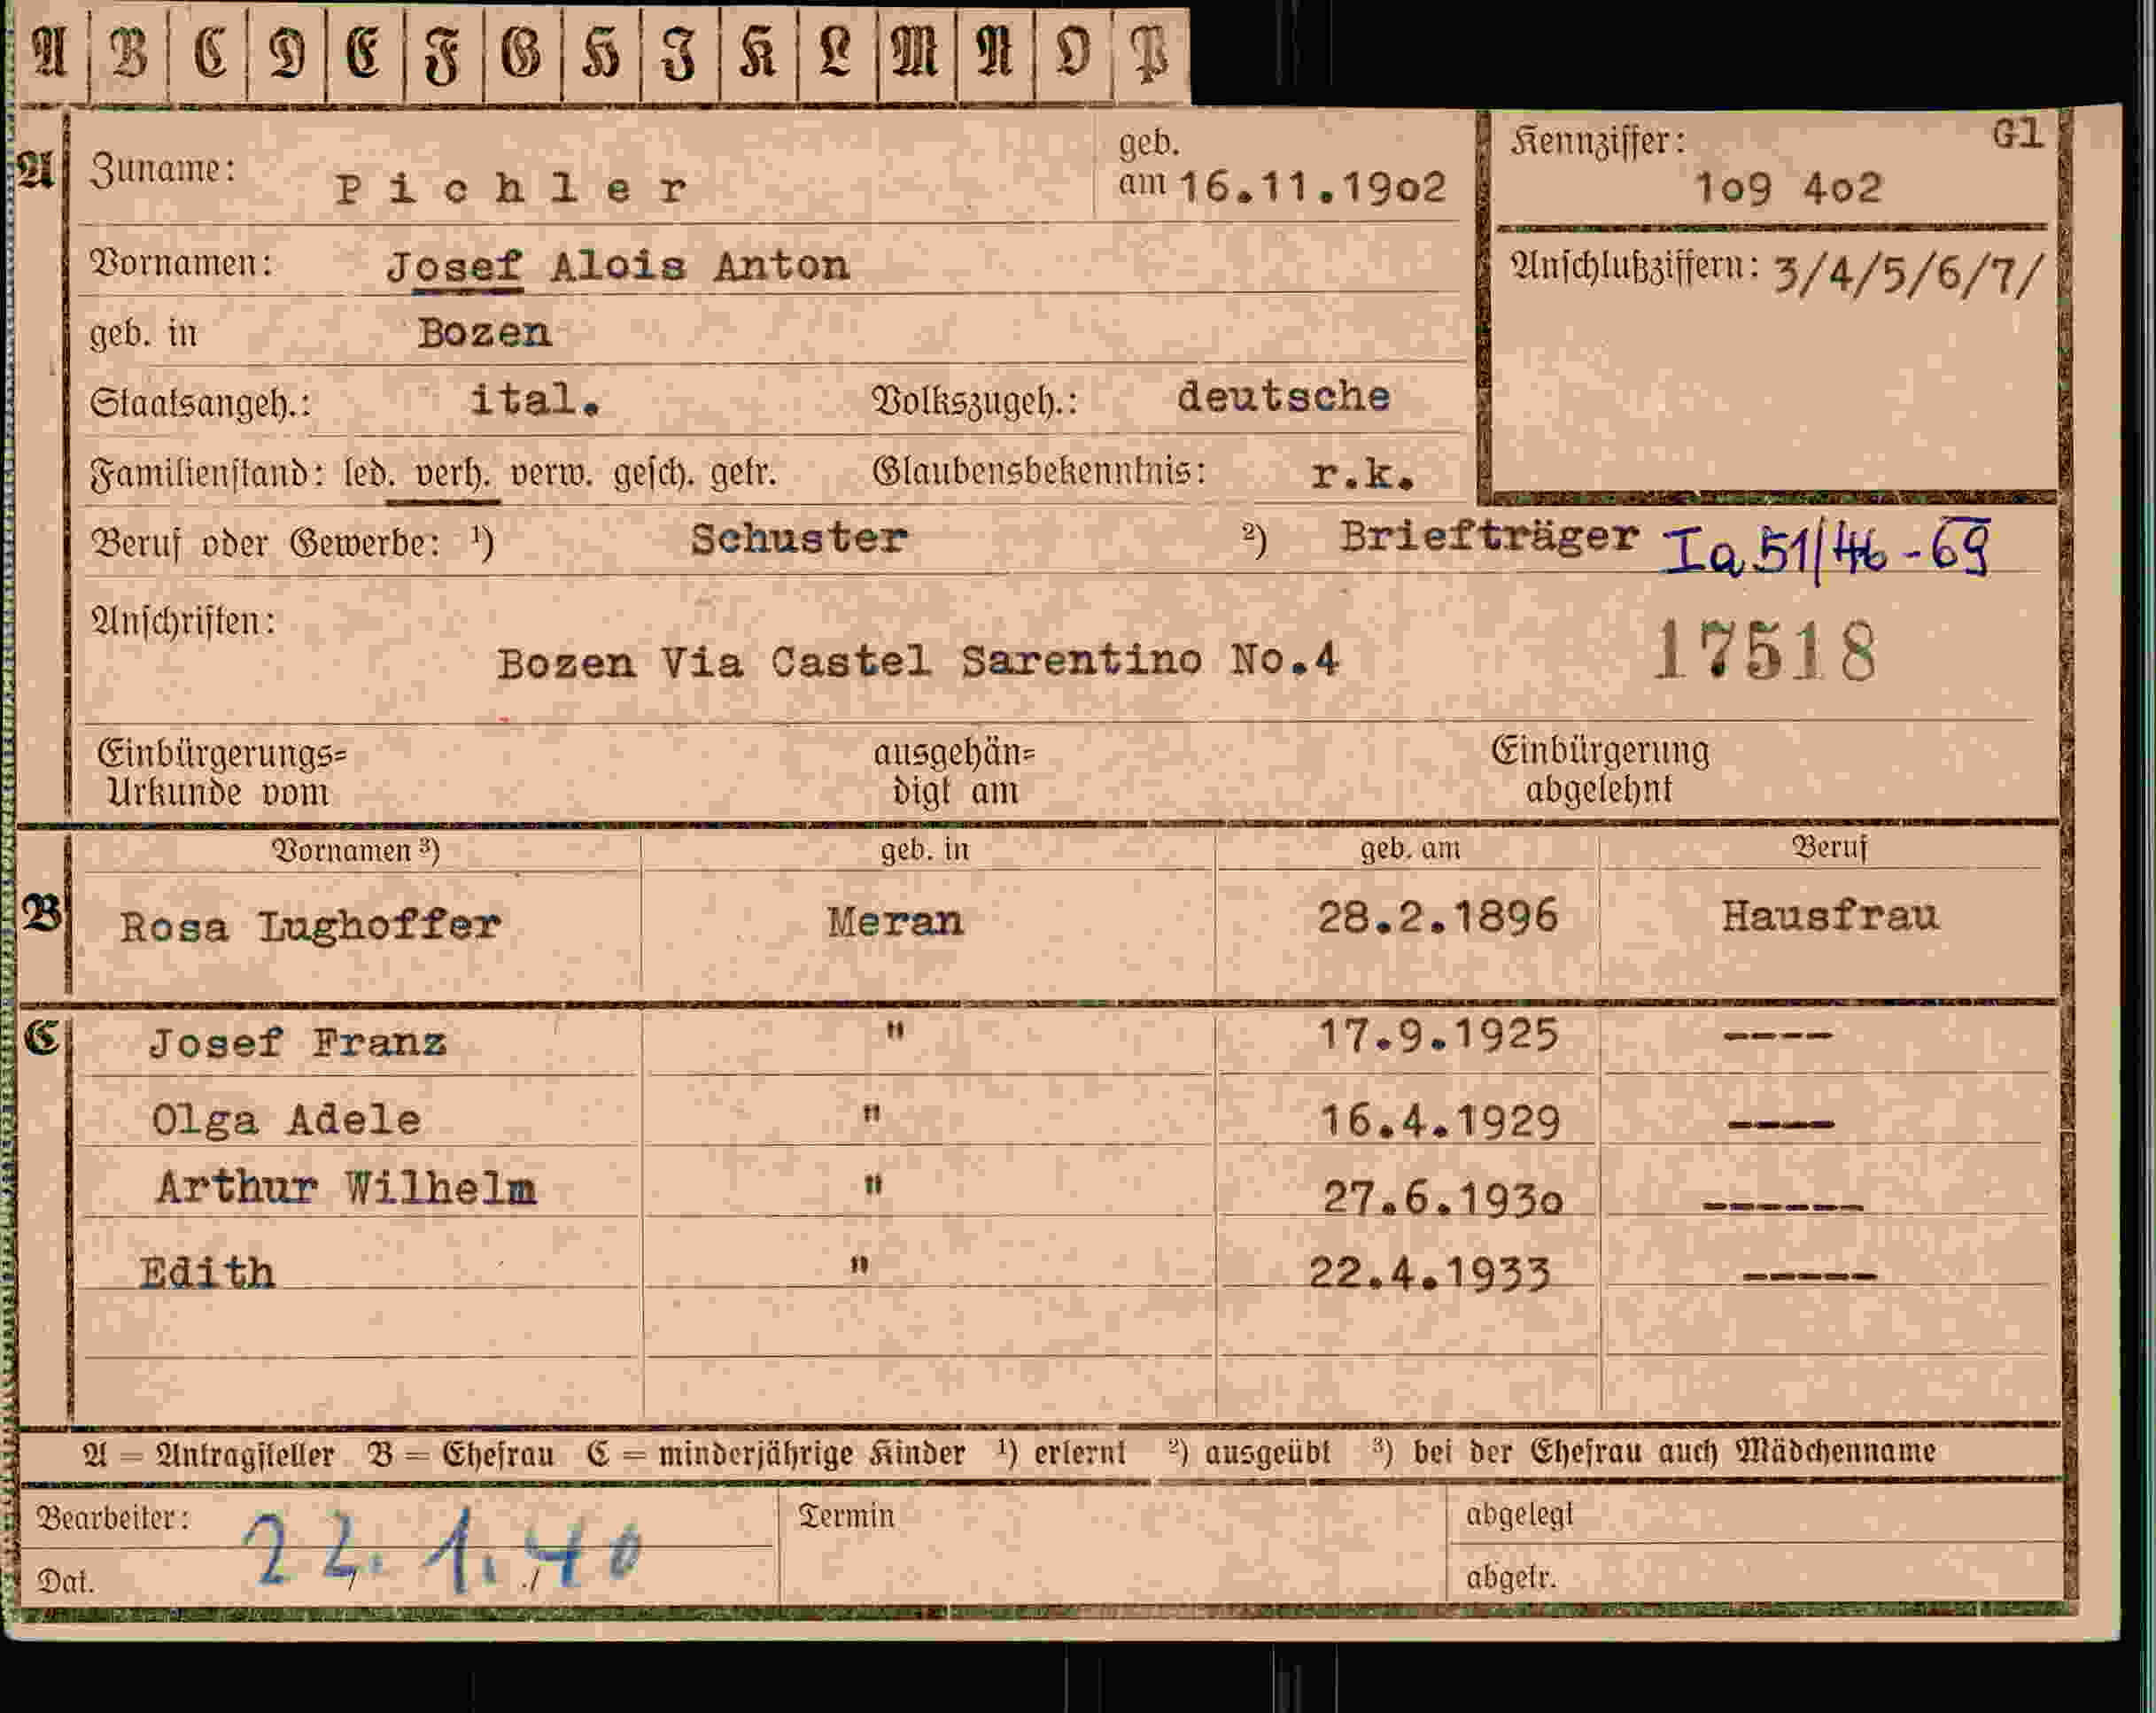 A B C D E F G H I K L M N O P
A Zuname: Pichler geb. am 16.11.19o2 Kennziffer: Gl
1o9 4o2
Vornamen: Josef Alois Anton Anschlußziffern: 3/4/5/6/7/
geb. in Bozen
Staatsangeh.: ital. Volkszugeh.: deutsche
Familienstand: led. verh. verw. gesch. getr. Glaubensbekenntnis: r.k.
Beruf oder Gewerbe: ¹) Schuster ²) Briefträger Ia 51/46-69
Anschriften:
Bozen Via Castel Sarentino No.4 17518
Einbürgerungs= ausgehän= Einbürgerung
Urkunde vom digt am abgelehnt
Vornamen ³) geb. in geb. am Beruf
B Rosa Lughoffer Meran 28.2.1896 Hausfrau
C Josef Franz " 17.9.1925 ----
Olga Adele " 16.4.1929 ----
Arthur Wilhelm " 27.6.193o ------
Edith " 22.4.1933 -----
A = Antragsteller B = Ehefrau C = minderjährige Kinder ¹) erlernt ²) ausgeübt ³) bei der Ehefrau auch Mädchenname
Bearbeiter: Termin abgelegt
22.1.40
Dat. abgetr.